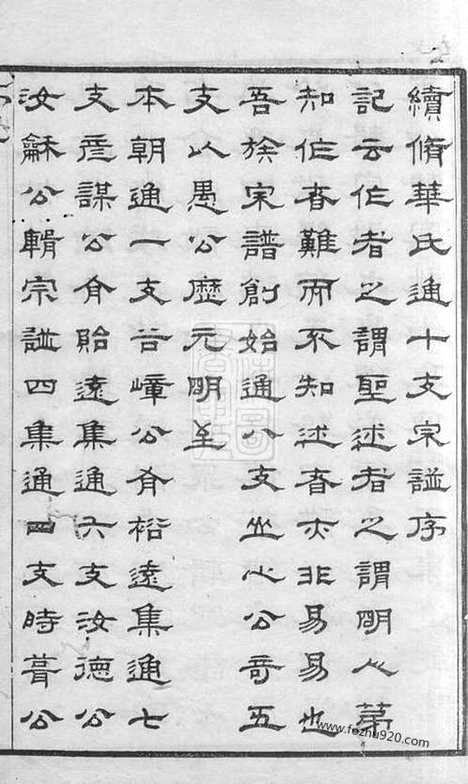 續脩華氏通十支宗諩序
記云作者之謂聖述者之謂明人第
知作者難而不知述者亦非易易也
吾族宋譜創始通八支坐心公五
支以愚公歷元明至
本朝通一支谷嶂公有裕遠集通七
支彥謀公有貽遠集通六支汝德公
汝龢公輯宗諩四集通四支時公
www.fozhu920.com